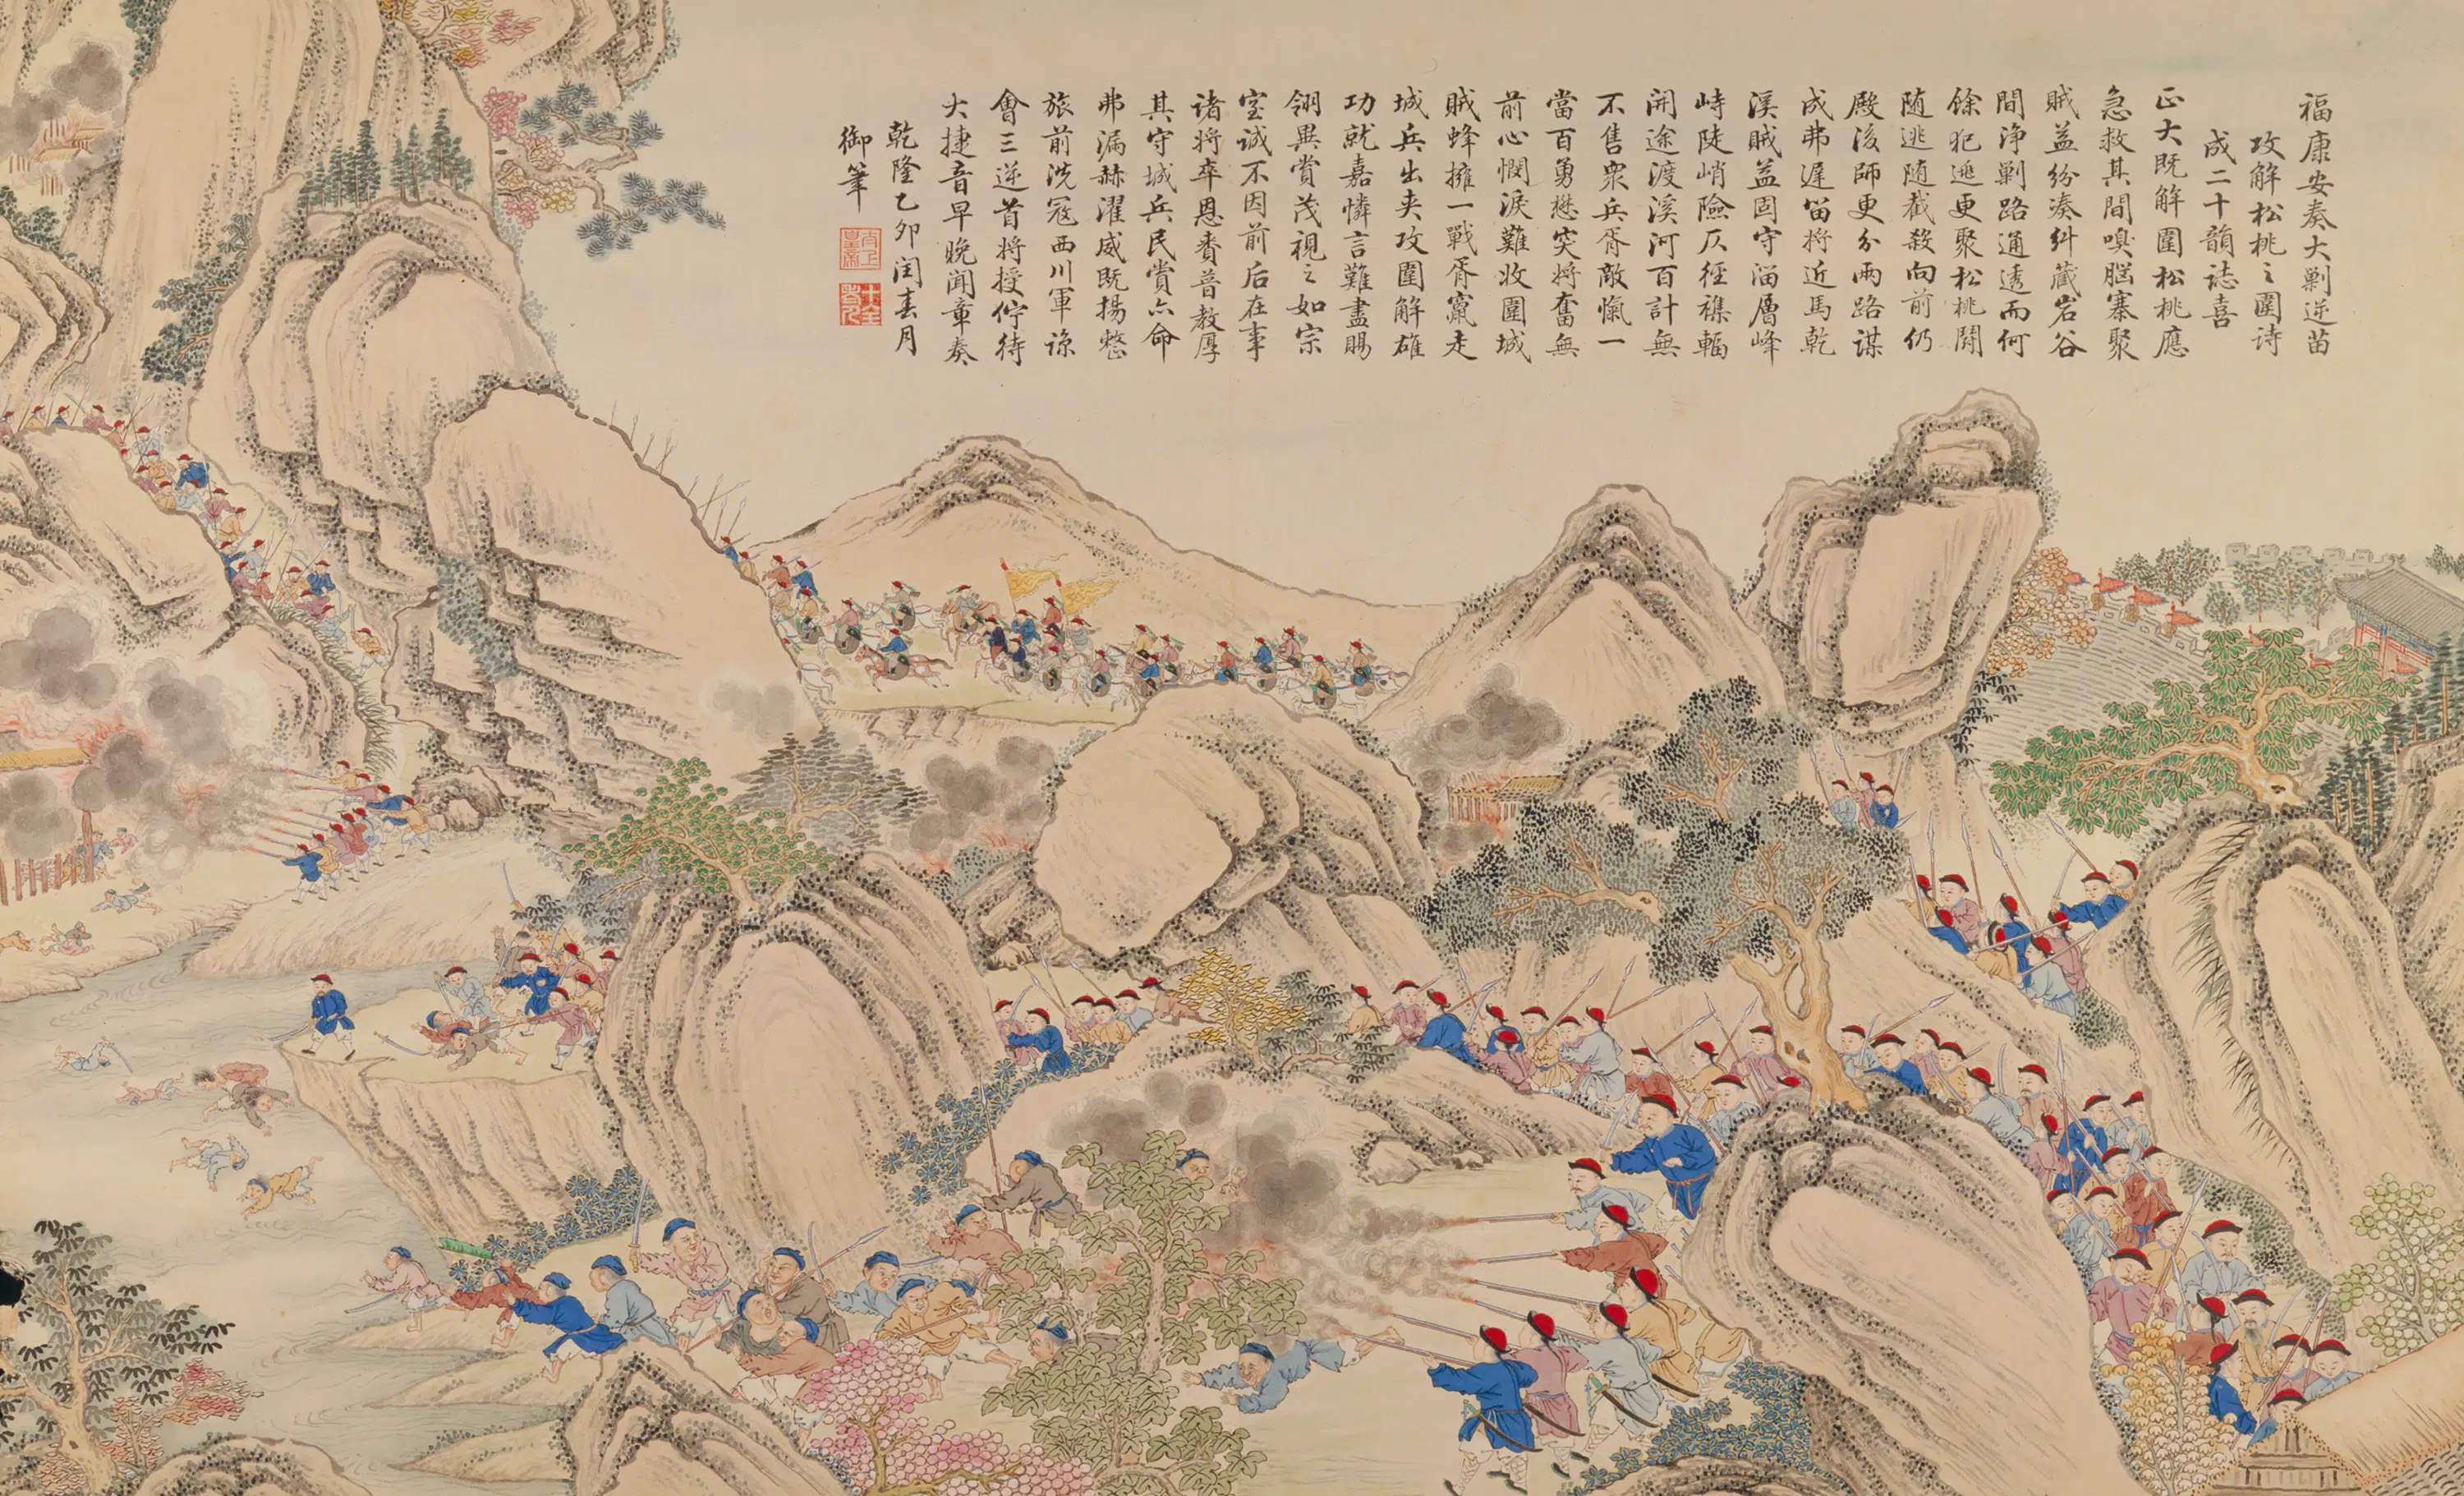 福康安奏大剿逆苗
攻解松桃之圍诗
成二十韻誌喜
正大既解圍松桃應
急救其間嗅脳寨聚
賊益纷凑糾藏岩谷
間淨剿路通透而何
餘犯逃更聚松桃閧
随逃随截殺向前仍
殿後師更分兩路谋
成弗遲留将近馬乾
溪賊益固守溜層峰
峙陡峭險仄徑襍輻
開途渡溪河百計無
不售衆兵胥敵愾一
當百勇懋突将奮無
前心憫淚難收圍城
賊蜂擁一戰胥竄走
城兵出夹攻圍解雄
功就嘉憐言難盡賜
翎異賞茂視之如宗
室诚不因前后在事
诸将卒恩赉普教厚
其守城兵民賞亦命
弗漏赫濯威既揚整
旅前洗冦西川軍諒
會三逆首将授俘待
大捷音早晚聞章奏
乾隆乙卯闰春月
御筆
太上皇帝
十全老人